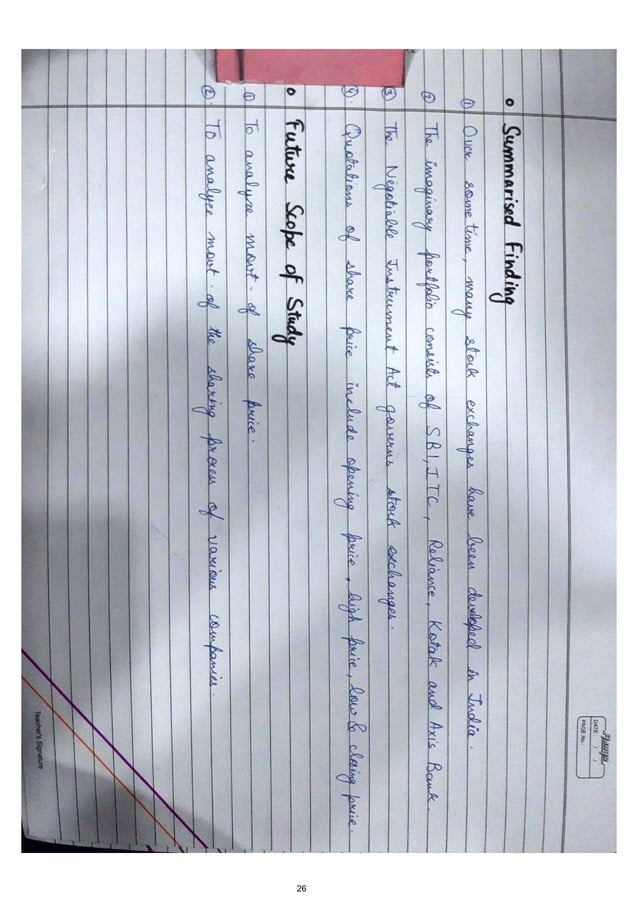 DATE: / /
PAGE No.:
• Summarised Finding
① Over some time, many stock exchanges have been developed in India.
② The imaginary portfolio consists of SBI, ITC, Reliance, Kotak and Axis Bank.
③ The Negotiable Instrument Act governs stock exchanges.
④. Quotations of share price include opening price, high price, low & closing price.
• Future Scope of Study
① To analyze movt. of share price.
②. To analyze movt. of the sharing process of various companies.
Teacher's Signature
26